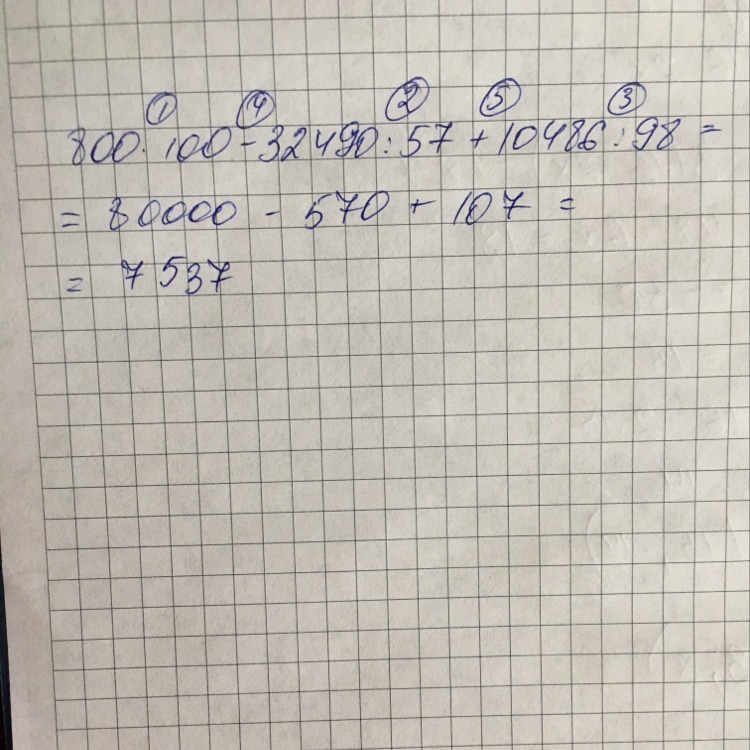 ① ④ ② ⑤ ③
800 · 100 - 32490 : 57 + 10486 : 98 =
= 80000 - 570 + 107 =
= 7537